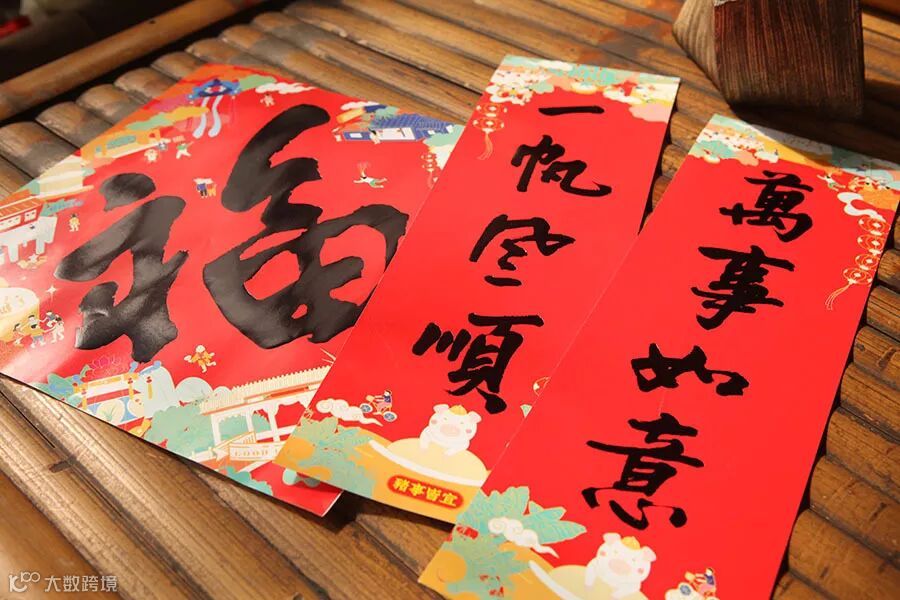 福
一帆風順
萬事如意
豬事皆宜
GOOD
大数跨境